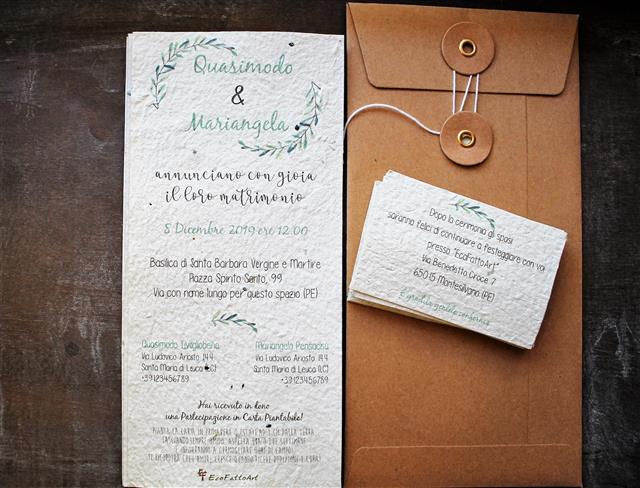 Quasimodo
&
Mariangela
annunciano con gioia
il loro matrimonio
8 Dicembre 2019 ore 12.00
Basilica di Santa Barbara Vergine e Martire
Piazza Spirito Santo, 99
Via con nome lungo per questo spazio (PE)
Quasimodo
Via Ludovico Ariosto 144
Santa Maria di Leuca (LC)
+39123456789
Mariangela Pensacisu
Via Ludovico Ariosto 144
Santa Maria di Leuca (LC)
+39123456789
Hai ricevuto in dono
una Partecipazione in Carta Piantabile!
EcoFattoArt
Dopo la cerimonia gli sposi
saranno felici di continuare a festeggiare con voi
presso "EcoFattoArt"
Via Benedetto Croce 7
65015 Montesilvano (PE)
È gradita gentile conferma